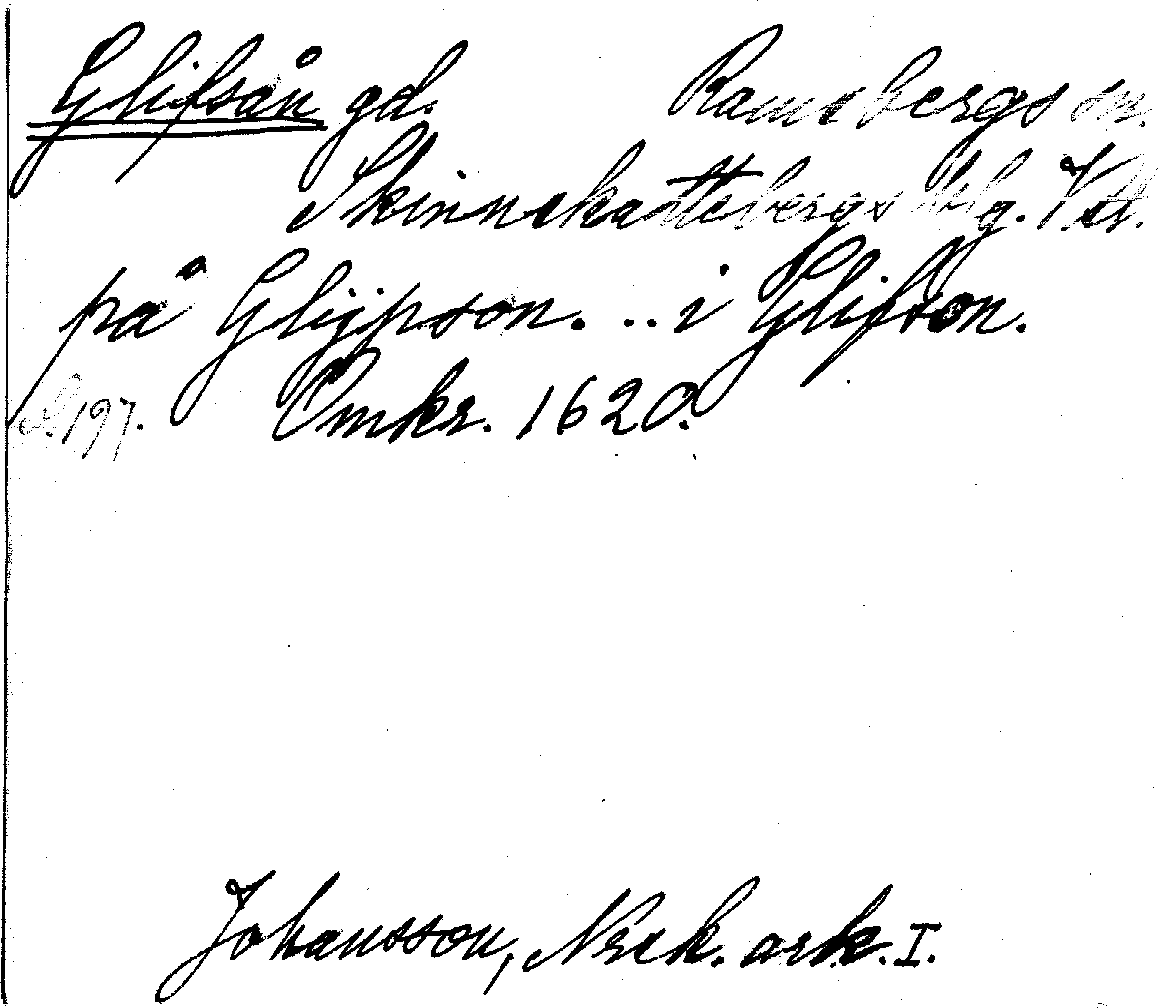 Glifsån gd. Ramsbergs sn.
Skinnskattebergs blg. Vstl.
på Glijpson. ... i Glifson.
S. 197. Omkr. 1620.
Johansson, Nerk. ark. I.